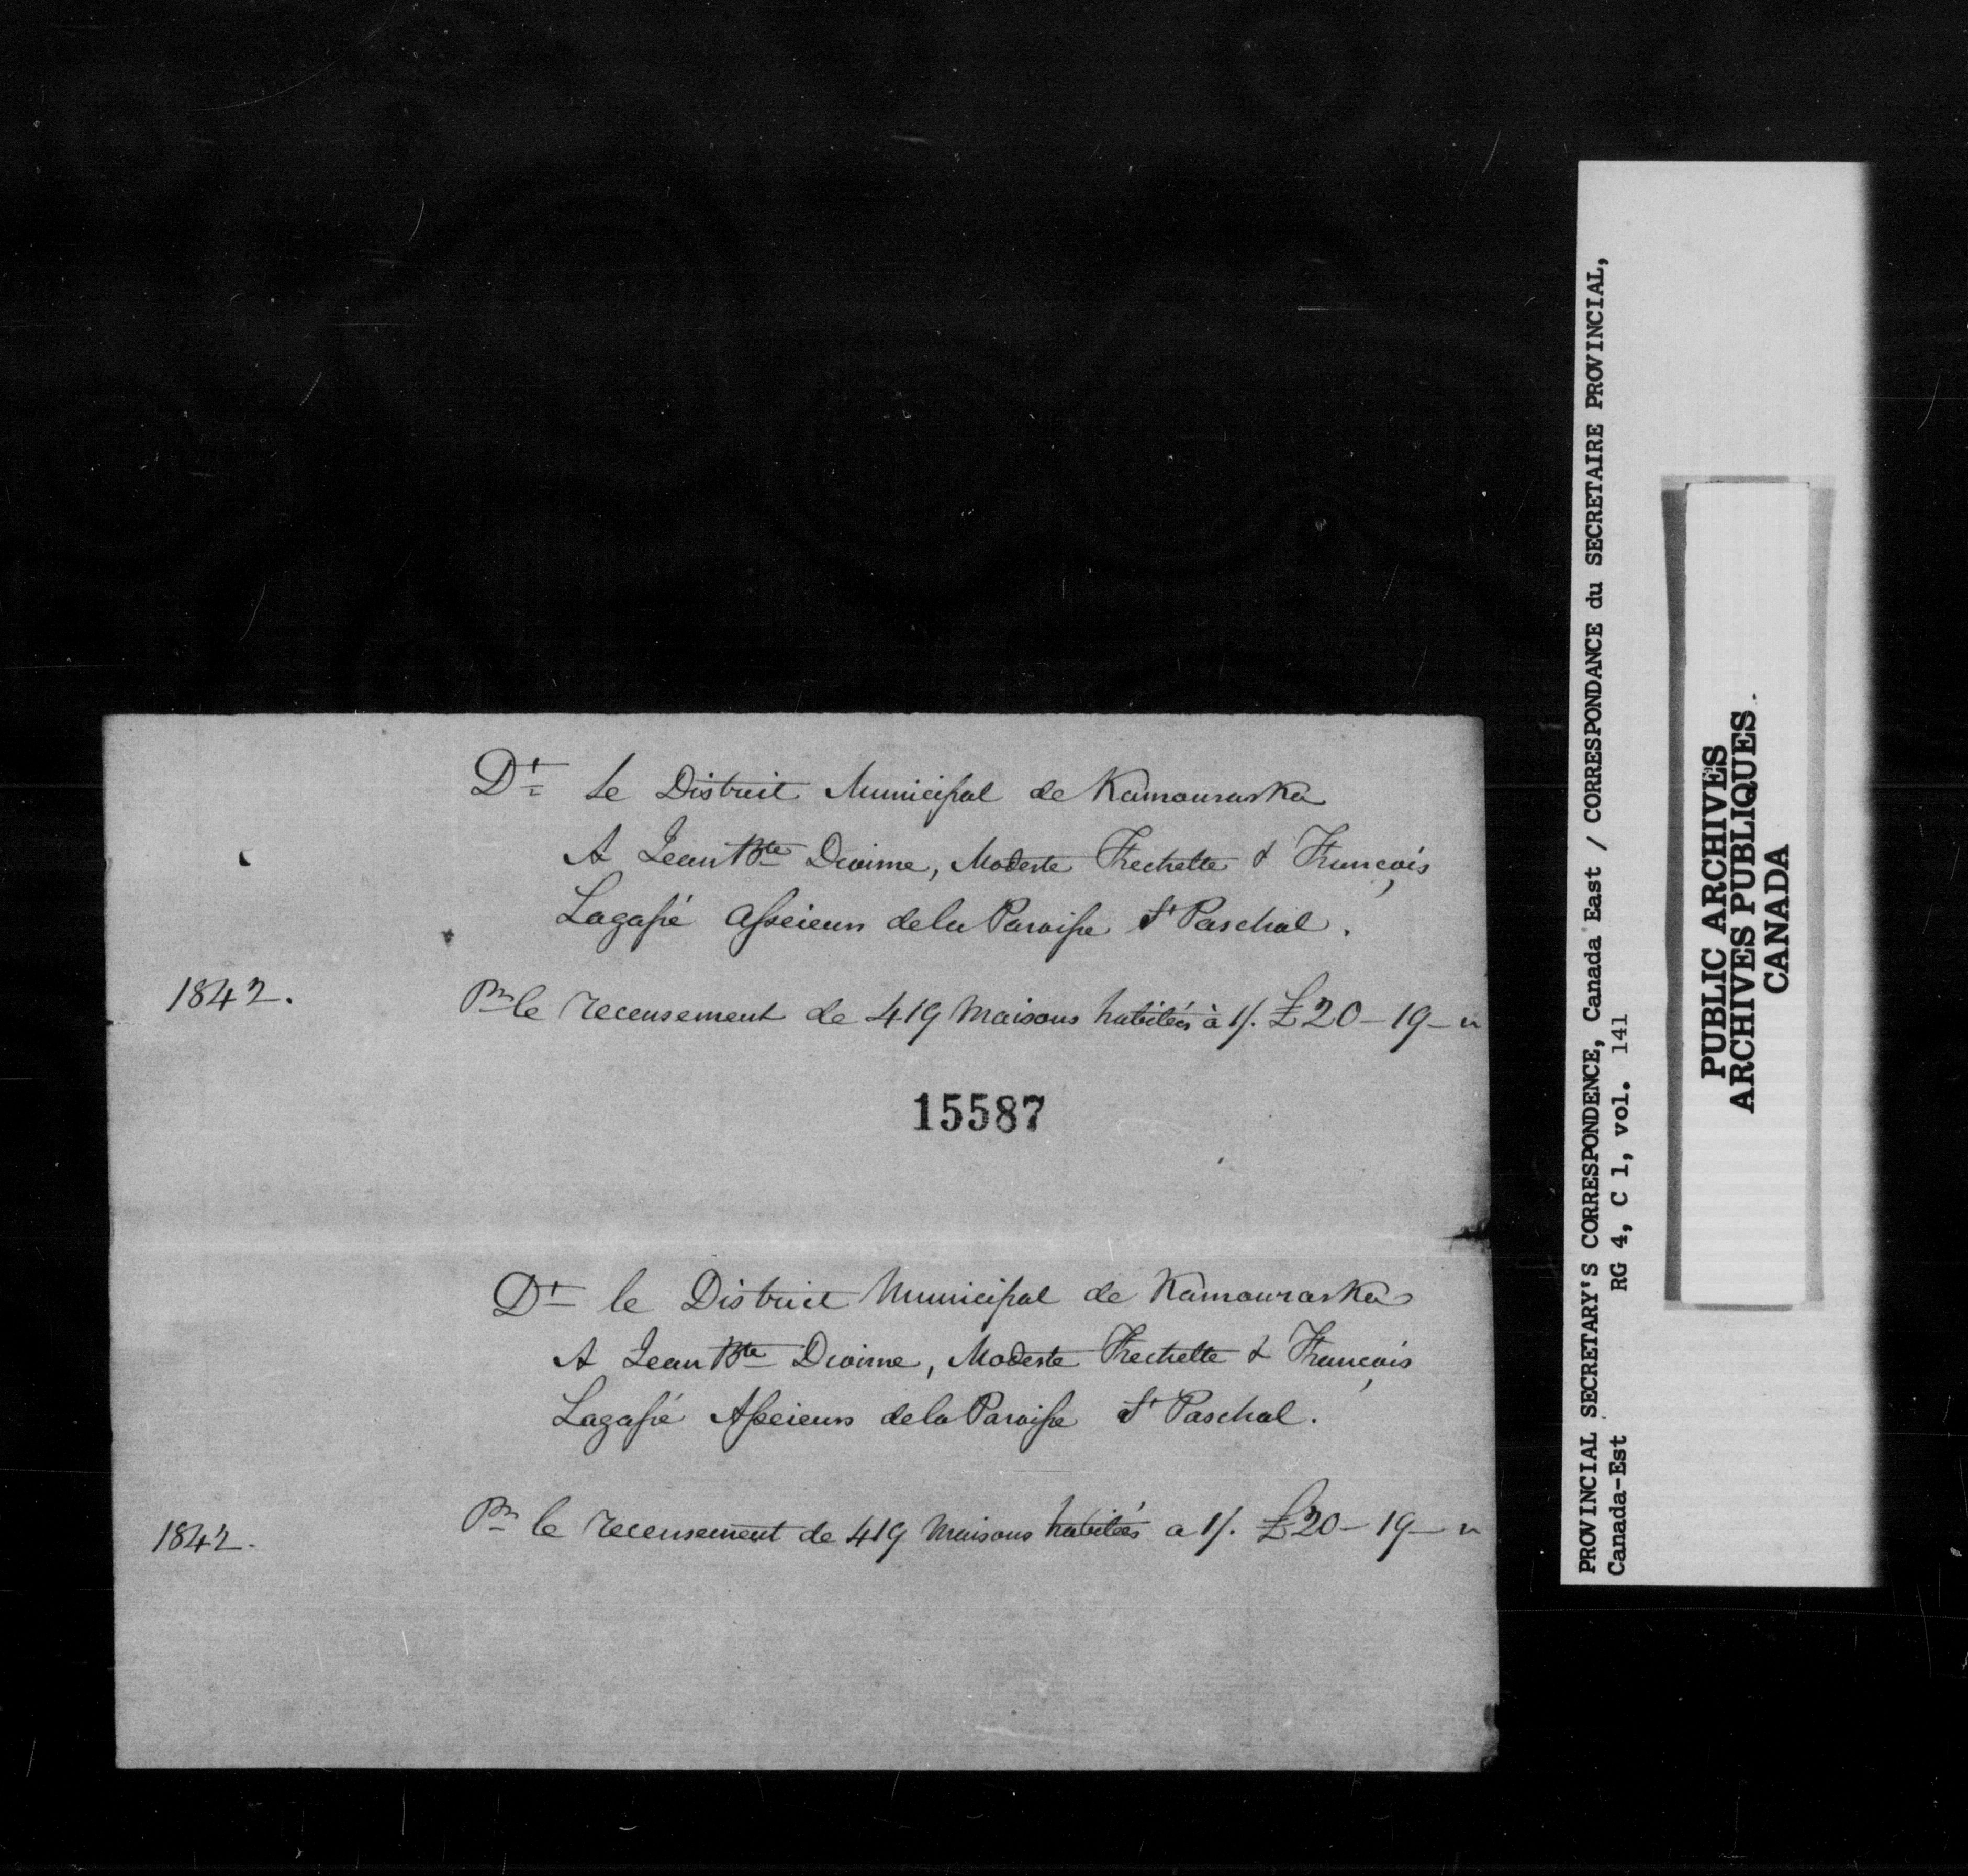 Dt Le District Municipal de Kamouraska
A Jean Bte Dionne, Modeste Frechette & François
Lagassé Asseieurs de la Paroisse St Paschal.
1842. Pr le recensement de 419 Maisons habitées à 1/. £20-19-"
15587
Dt le District Municipal de Kamouraska
A Jean Bte Dionne, Modeste Frechette & François
Lagassé Asseieurs de la Paroisse St Paschal.
1842. Pr le recensement de 419 Maisons habitées a 1/. £20-19-"
PROVINCIAL SECRETARY'S CORRESPONDENCE, Canada East / CORRESPONDANCE du SECRETAIRE PROVINCIAL,
Canada-Est RG 4, C 1, vol. 141
PUBLIC ARCHIVES
ARCHIVES PUBLIQUES
CANADA